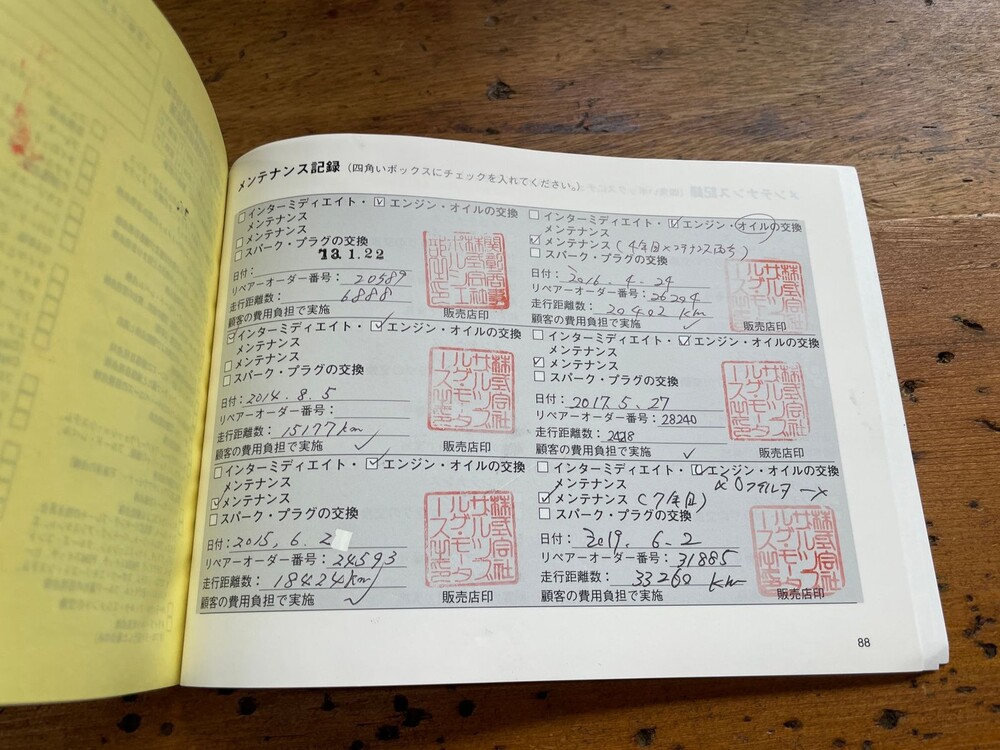 メンテナンス記録 (四角いボックスにチェックを入れてください。)
インターミディエイト・ エンジン・オイルの交換
メンテナンス
メンテナンス
スパーク・プラグの交換
'13.1.22
日付:
リペアーオーダー番号: 20589
走行距離数: 6888
顧客の費用負担で実施
販売店印
インターミディエイト・ エンジン・オイルの交換
メンテナンス
メンテナンス
スパーク・プラグの交換
日付: 2014.8.5
リペアーオーダー番号:
走行距離数: 15177km
顧客の費用負担で実施
株式会社ザルツブルグ・モータース之印
販売店印
インターミディエイト・ エンジン・オイルの交換
メンテナンス
メンテナンス
スパーク・プラグの交換
日付: 2015.6.2
リペアーオーダー番号: 24593
走行距離数: 18424km
顧客の費用負担で実施
株式会社ザルツブルグ・モータース之印
販売店印
インターミディエイト・ エンジン・オイルの交換
メンテナンス
メンテナンス (4年目メンテナンス
スパーク・プラグの交換
日付: 2016.4.24
リペアーオーダー番号: 26204
走行距離数: 20402 km
顧客の費用負担で実施
株式会社ザルツブルグ・モータース之印
販売店印
インターミディエイト・ エンジン・オイルの交換
メンテナンス
メンテナンス
スパーク・プラグの交換
日付: 2017.5.27
リペアーオーダー番号: 28240
走行距離数:
顧客の費用負担で実施
株式会社ザルツブルグ・モータース之印
販売店印
インターミディエイト・ エンジン・オイルの交換
メンテナンス
メンテナンス (7年目)
スパーク・プラグの交換
日付: 2019.6.2
リペアーオーダー番号: 31885
走行距離数: 33260 km
顧客の費用負担で実施
株式会社ザルツブルグ・モータース之印
販売店印
88